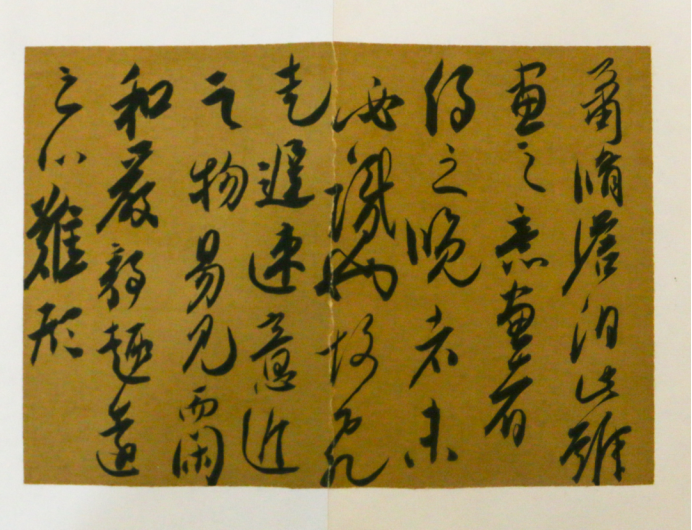 蕭條澹泊此難
畫之意畫者
得之覽者未
必識也故飛
走遲速意近
之物易見而閑
和嚴靜趣遠
之心難形